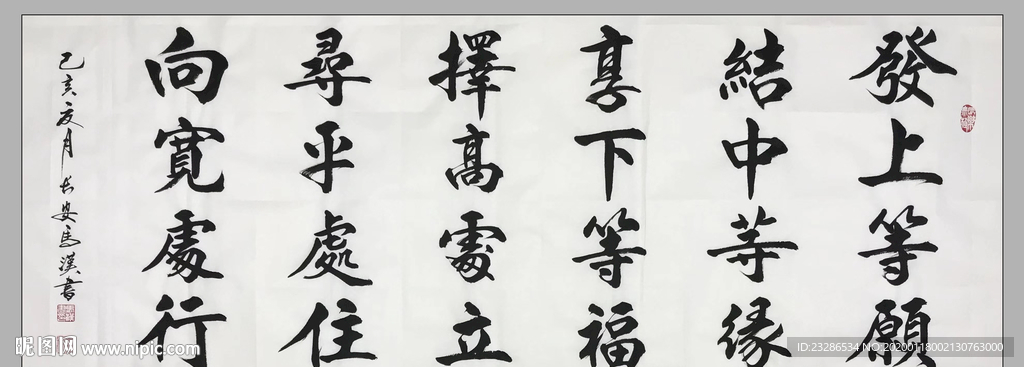 發上等願
結中等緣
享下等福
擇髙處立
尋平處住
向寬處行
己亥夏月长安馬漢書
昵图网 www.nipic.com
ID:23286534 NO:20200118002130763000